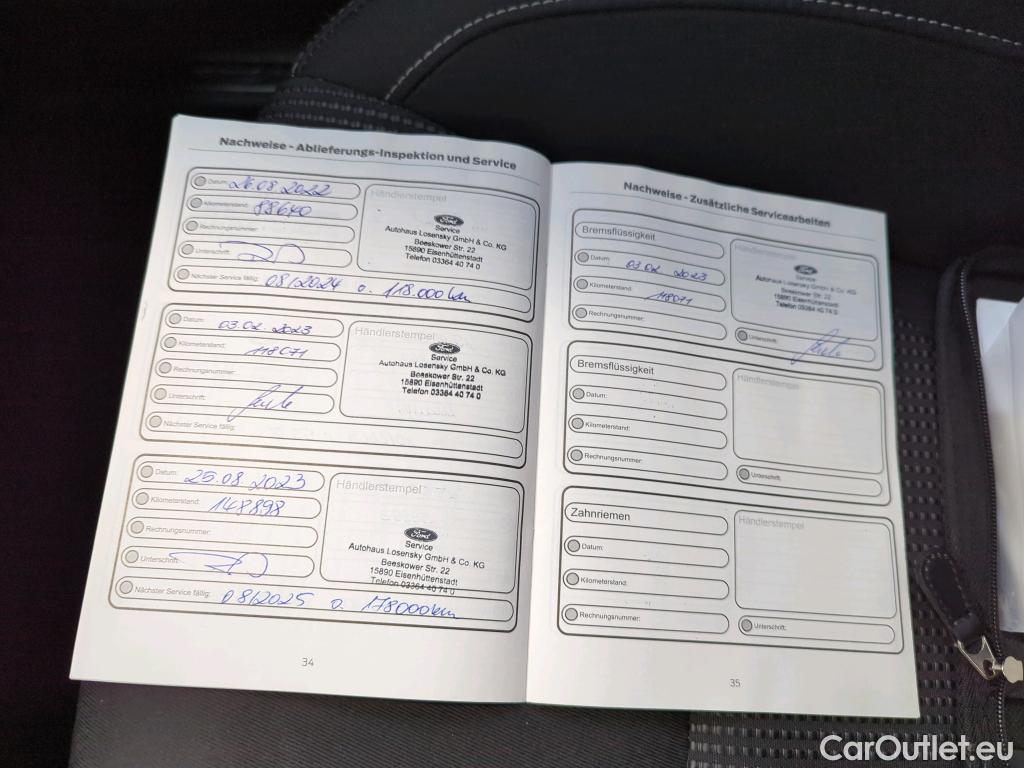 Nachweise - Ablieferungs-Inspektion und Service
Datum: 26.08.2022
Kilometerstand: 88640
Rechnungsnummer:
Unterschrift:
Nächster Service fällig: 08/2024 o. 118.000 km
Händlerstempel
Ford
Service
Autohaus Losensky GmbH & Co. KG
Beeskower Str. 22
15890 Eisenhüttenstadt
Telefon 03364 40 74 0
Datum: 03.02.2023
Kilometerstand: 118071
Rechnungsnummer:
Unterschrift:
Nächster Service fällig:
Händlerstempel
Ford
Service
Autohaus Losensky GmbH & Co. KG
Beeskower Str. 22
15890 Eisenhüttenstadt
Telefon 03364 40 74 0
Datum: 25.08.2023
Kilometerstand: 148898
Rechnungsnummer:
Unterschrift:
Nächster Service fällig: 08/2025 o. 178000 km
Händlerstempel
Ford
Service
Autohaus Losensky GmbH & Co. KG
Beeskower Str. 22
15890 Eisenhüttenstadt
Telefon 03364 40 74 0
34
Nachweise - Zusätzliche Servicearbeiten
Bremsflüssigkeit
Datum: 03.02.2023
Kilometerstand: 118071
Rechnungsnummer:
Händlerstempel
Ford
Service
Autohaus Losensky GmbH & Co. KG
Beeskower Str. 22
15890 Eisenhüttenstadt
Telefon 03364 40 74 0
Unterschrift:
Bremsflüssigkeit
Datum:
Kilometerstand:
Rechnungsnummer:
Händlerstempel
Unterschrift:
Zahnriemen
Datum:
Kilometerstand:
Rechnungsnummer:
Händlerstempel
Unterschrift:
35
CarOutlet.eu